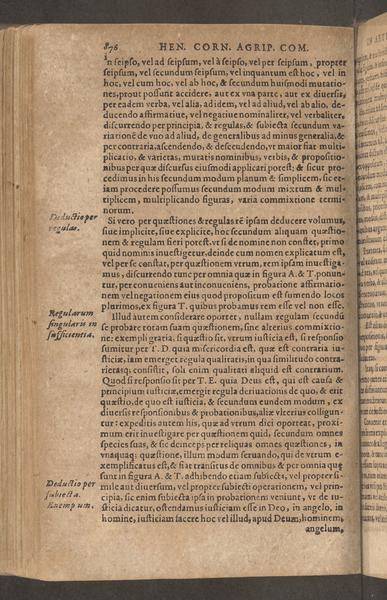 876 HEN. CORN. AGRIP. COM.
'n seipso, vel ad seipsum, vel à seipso, vel per seipsum, propter
seipsum, vel secundum seipsum, vel inquantum est hoc, vel in
hoc, vel cum hoc, vel ab hoc, & secundum huiusmodi mutatio-
nes, prout possunt accidere, aut ex vna parte, aut ex diuersis,
per eadem verba, vel alia, ad idem, vel ad aliud, vel ab alio, de-
ducendo affirmatiue, vel negatiue nominaliter, vel verbaliter,
discurrendo per principia, & regulas, & subiecta secundum va-
riationē de vno ad aliud, de generalibus ad minus generalia, &
per contraria, ascendendo, & descendendo, vt maior fiat multi-
plicatio, & varietas, mutatis nominibus, verbis, & propositio-
nibus per quæ discursus eiusmodi applicari potest; & sicut pro-
cedimus in his secundum modum planum & simplicem, sic et-
iam procedere possumus secundum modum mixtum & mul-
tiplicem, multiplicando figuras, varia commixtione termi-
norum.
Deductio per
regulas.
Si vero per quæstiones & regulas rē ipsam deducere volumus,
siue implicite, siue explicite, hoc secundum aliquam quæstio-
nem & regulam fieri potest. vt si de nomine non constet, primo
quid nominis inuestigetur, deinde cum nomen explicatum est,
vel per se constat, per quæstionem vtrum, rem ipsam inuestiga-
mus, discurrendo tunc per omnia quæ in figura A. & T. ponun-
tur, per conueniens aut inconueniens, probatione affirmatio-
nem vel negationem eius quod propositum est sumendo locos
plurimos, ex figura T. quibus probamus rem esse vel non esse.
Regularum
singularis in
sufficientia.
Illud autem considerare oportet, nullam regulam secundū
se probare totam suam quæstionem, sine alterius commixtio-
ne: exempli gratia, si quæstio sit, vtrum iusticia est, si responsio
sumitur per T. D. quia misericordia est, quæ est contraria iu-
sticiæ, iam emerget regula qualitatis, in qua similitudo contra-
rietasq; consistit, sola enim qualitati aliquid est contrarium.
Quod si responsio sit per T. E. quia Deus est, qui est causa &
principium iusticiæ, emergit regula deriuationis de quo, & erit
quæstio, de quo est iusticia, & secundum eundem modum, ex
diuersis responsionibus & probationibus, aliæ vlterius colligun-
tur: expeditis autem his, quæ ad vtrum dici oporteat, proxi-
mum erit inuestigare per quæstionem quid, secundum omnes
species suas, & sic deinceps per reliquas omnes quæstiones, in
vnaquaq; quæstione, illum modum seruando, qui de vtrum e-
xemplificatus est, & fiat transitus de omnibus & per omnia quæ
sunt in figura A. & T. adhibendo etiam subiecta, vel propter si-
Deductio per
subiecta.
Exemplum.
mile aut diuersum, vel propter subiecti operationem, vel prin-
cipia, sic enim subiecta ipsa in probationem veniunt, vt de iu-
sticia dicatur, ostendamus iusticiam esse in Deo, in angelo, in
homine, iusticiam facere hoc vel illud, apud Deum, hominem,
angelum,